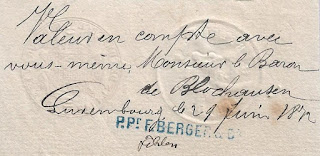 Valeur en compte avec
vous-même, Monsieur le Baron
de Blochausen
Luxembourg, le 29 Juin 18
P.Pon F. BERGER &